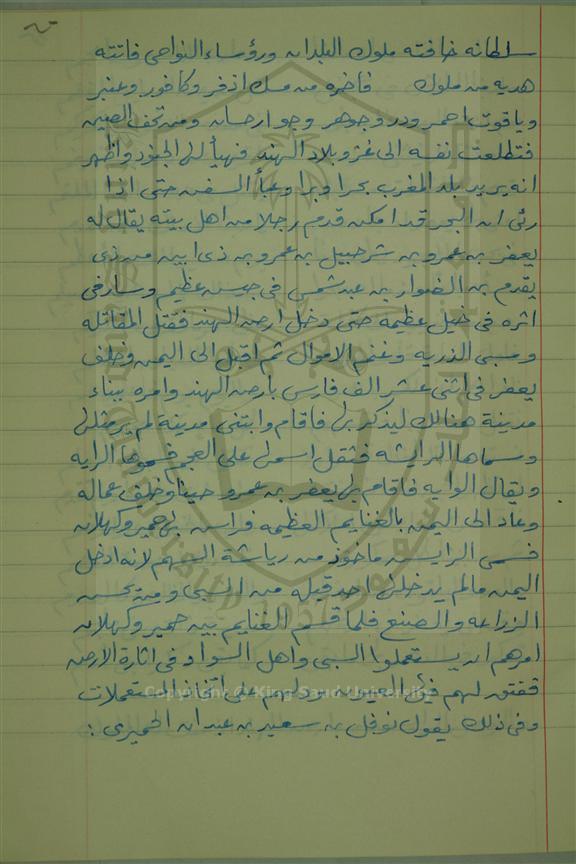 سلطانه خافته ملوك البلدان ورؤساء النواحي فاتته
هديه من ملوك فاخره من مسك اذفر وكافور وعنبر
وياقوت احمر ودر وجوهر وجوار حسان ومن تحف الصين
فتطلعت نفسه الى غزو بلاد الهند فهيأ لها الجنود واظهر
انه يريد بلد المغرب بحرا وبرا وعبأ السفن حتى اذا
رئى ان البحر قد امكن قدم رجلا من اهل بيته يقال له
يعفر بن عمرو بن شرحبيل بن عمرو بن ذى ابين من ذى
يقدم بن الصوار بن عبد شمس فى جيش عظيم وسار فى
اثره فى خيل عظيمه حتى دخل ارض الهند فقتل المقاتله
وسبى الذريه وغنم الاموال ثم اقبل الى اليمن وخلف
يعفر فى اثنى عشر الف فارس بارض الهند وامره ببناء
مدينة هنالك ليذكر بها فاقام وابتنى مدينة لم ير مثلها
وسماها الرايشه فثقل اسمها على العجم فسموها الرايه
ويقال الوايه فاقام بها يعفر بن عمرو حينا وخلف عماله
وعاد الى اليمن بالغنايم العظيمه فراس بها حمير وكهلان
فسمى الرايش ماخوذ من رياشة السهم لانه ادخل
اليمن مالم يدخلها احد قبله من السبى ومن يحسن
الزراعه والصنع فلما قسم الغنايم بين حمير وكهلان
امرهم ان يستعملوا السبى واهل السواد فى اثارة الارض
ففتق لهم فيها العيون ودلهم على اتخاذ المستعملات
وفى ذلك يقول نوفل بن سعيد بن عبدان الحميرى :
Copyright © King Saud University
1957